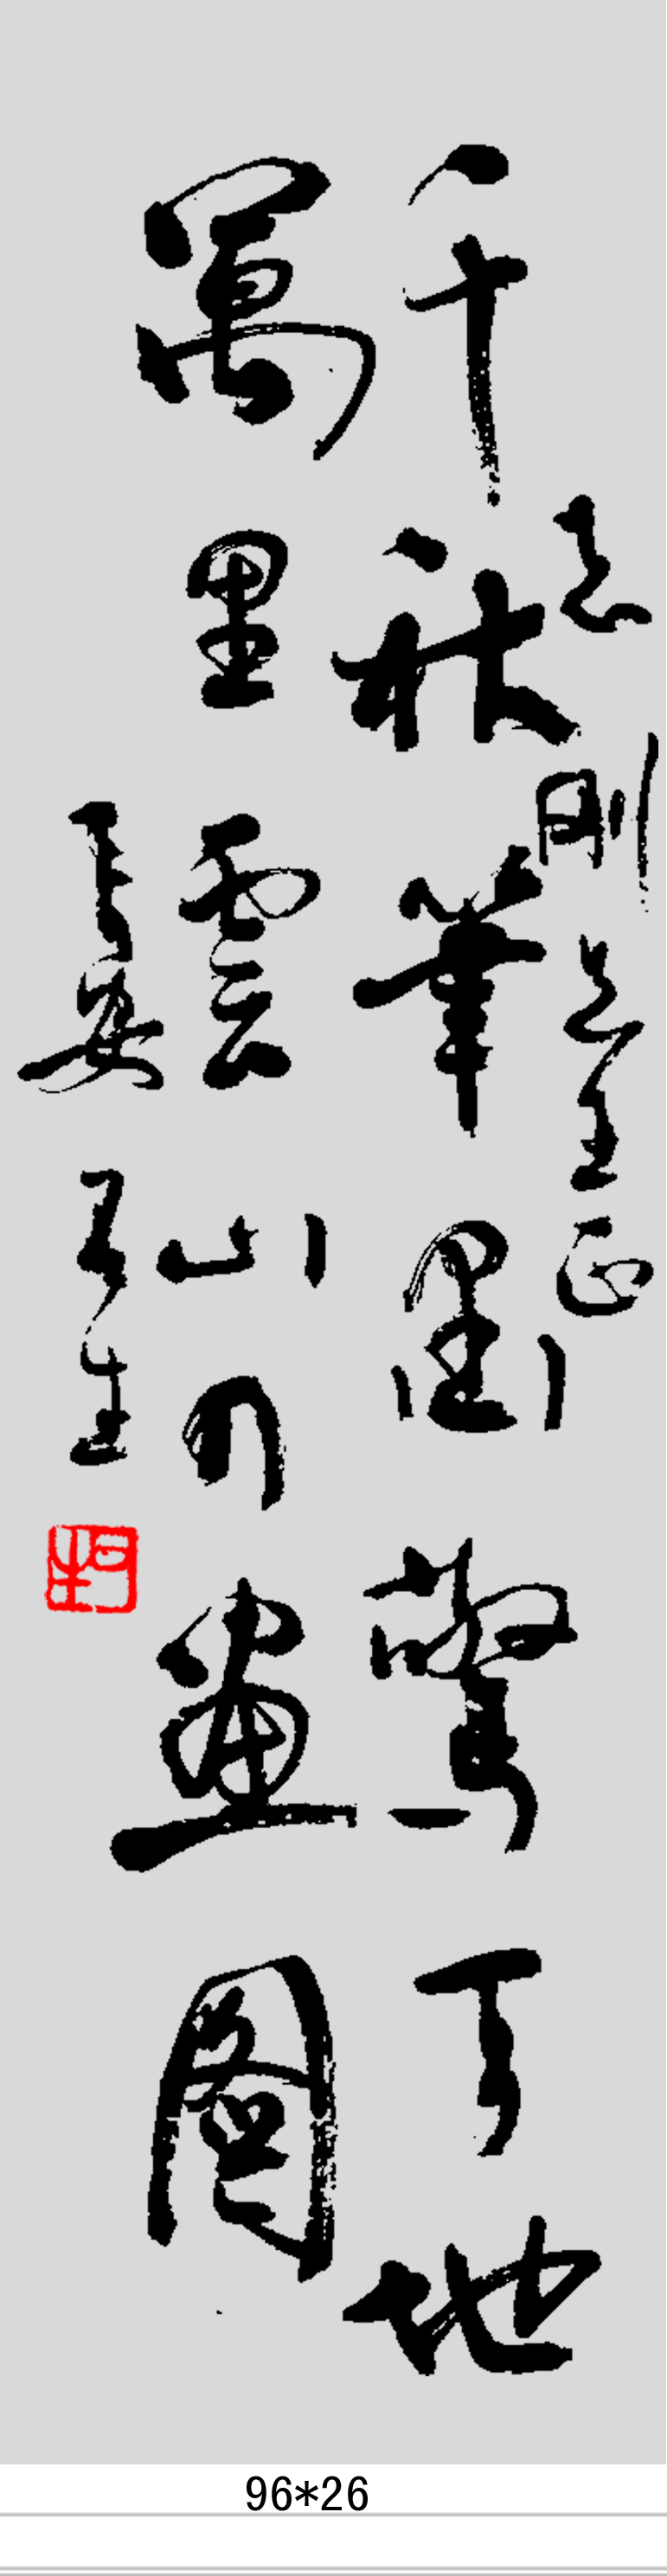 志剛先生正
千秋筆墨驚天地
萬里雲山畫圖
長安
96*26